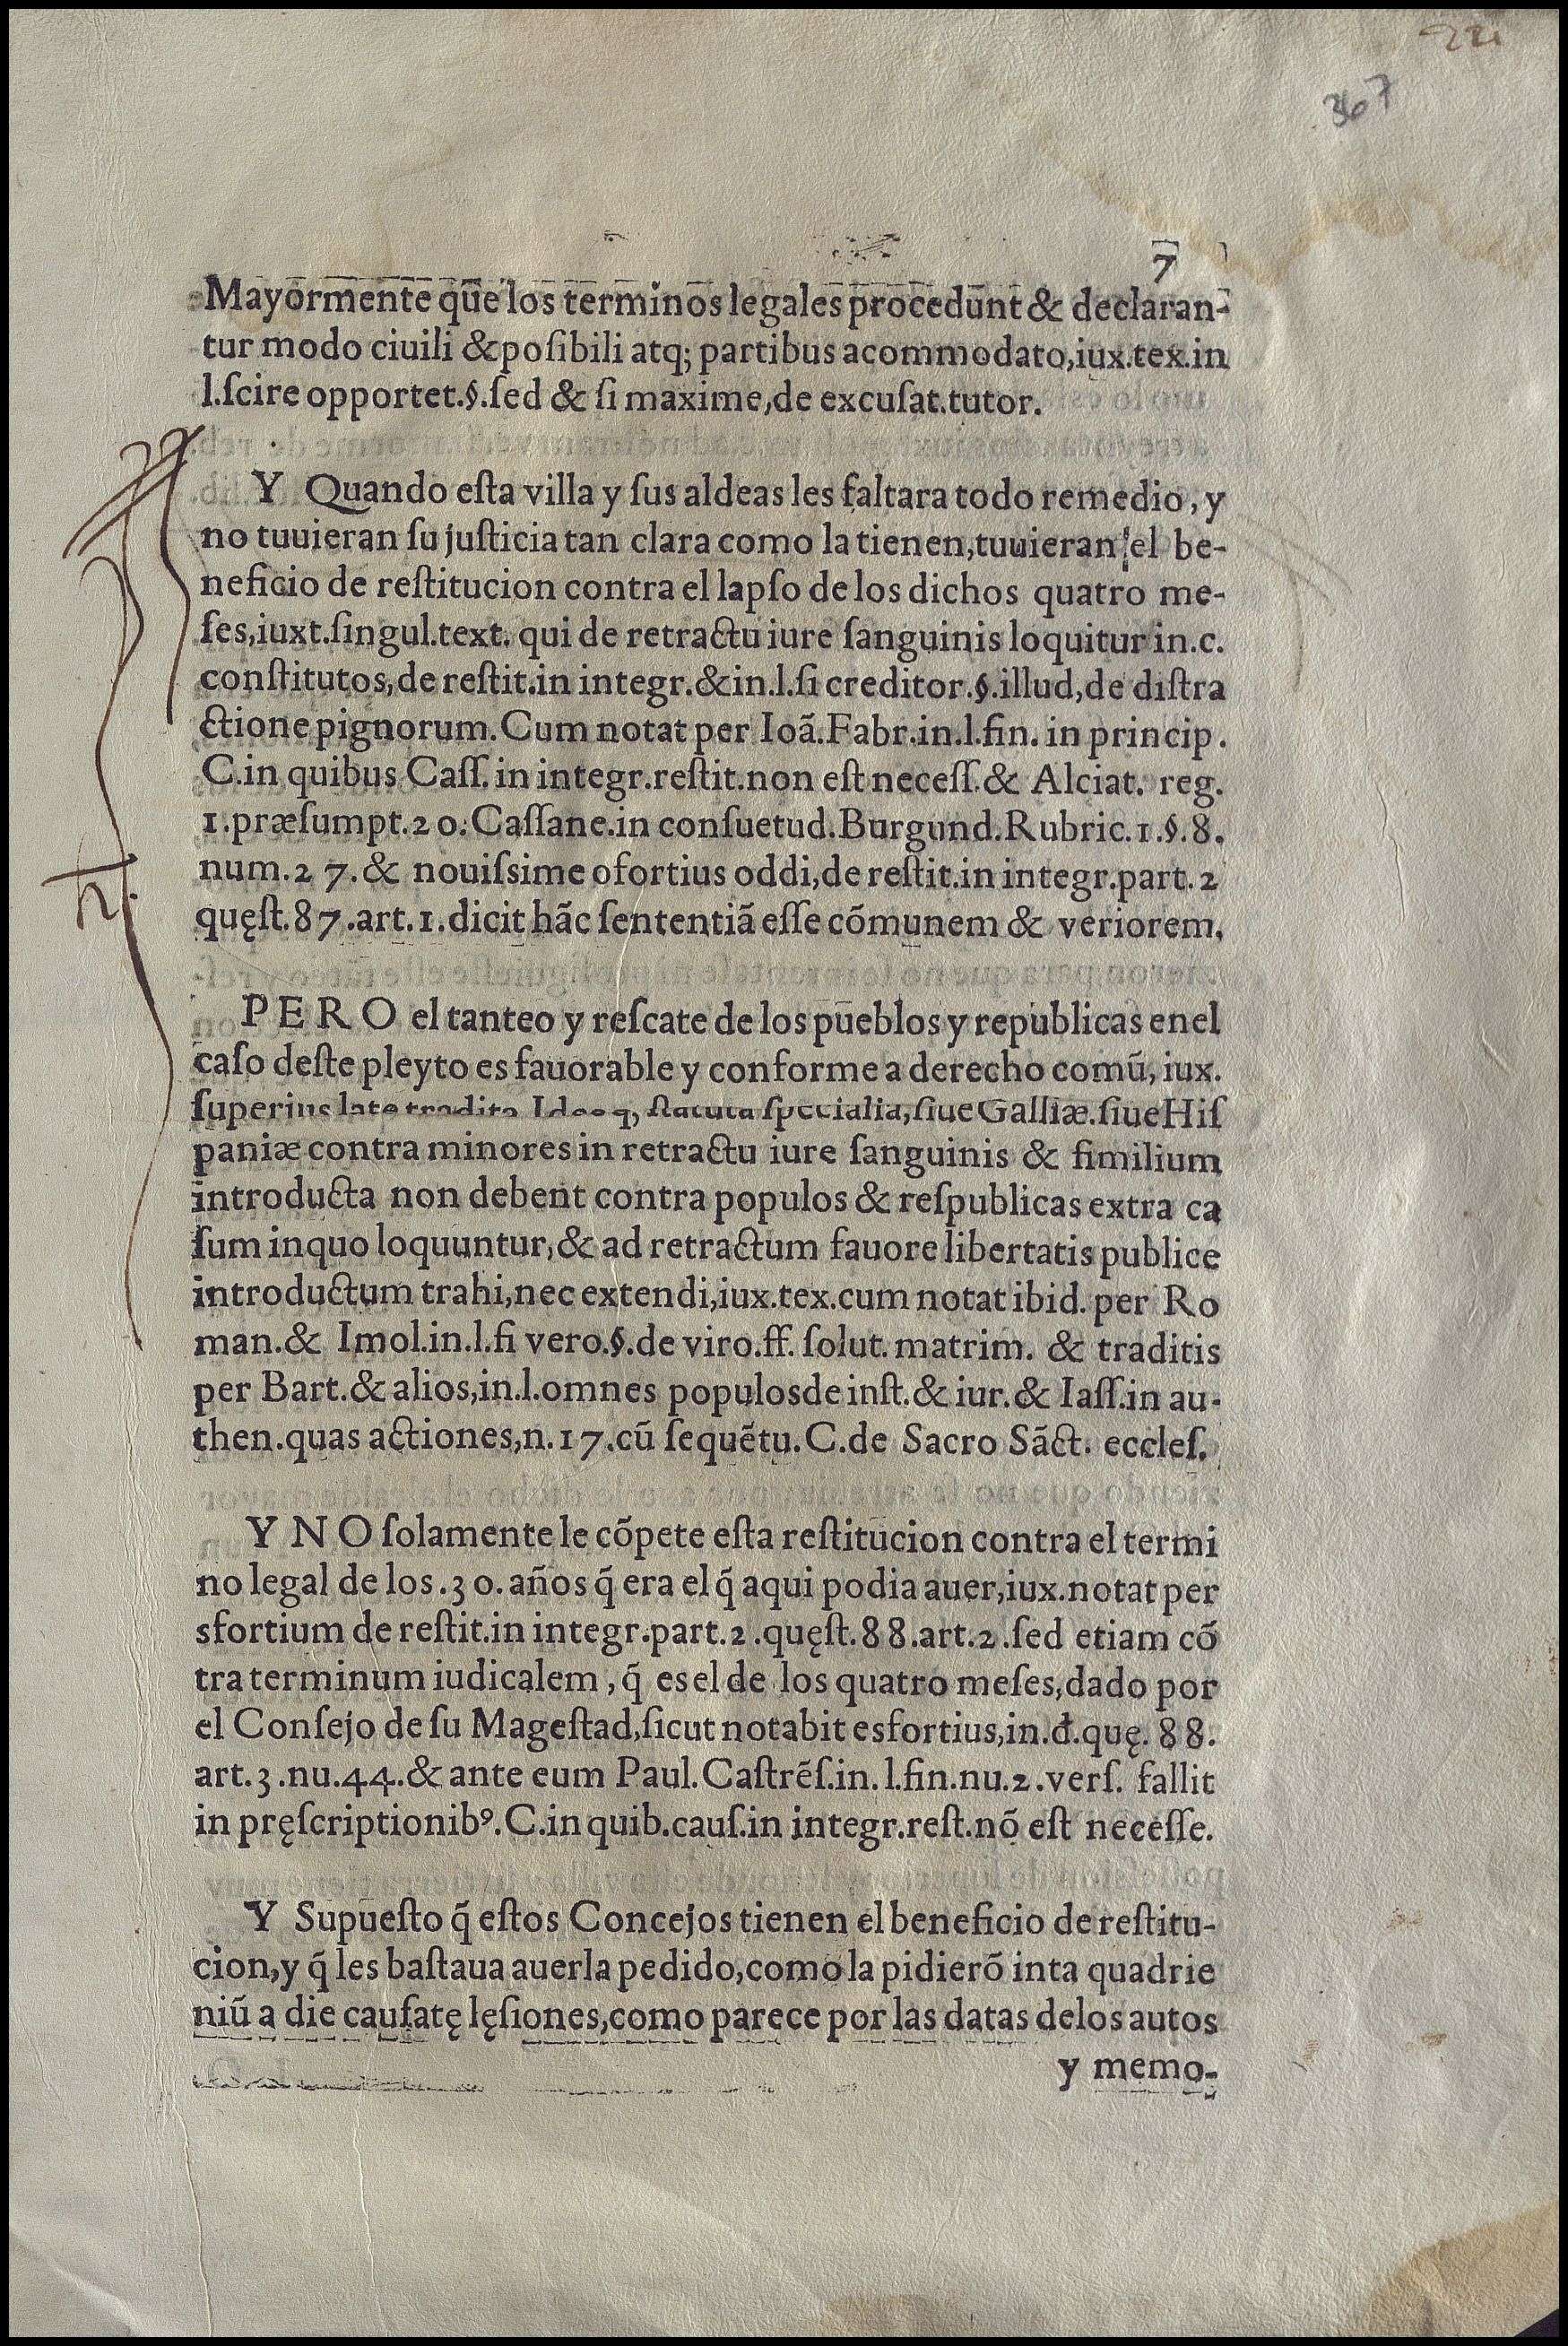 367
7
Mayormente que los terminos legales procedunt & declaran-
tur modo ciuili & posibili atq; partibus acommodato, iux.tex.in
l.ſcire opportet.§.ſed & ſi maxime,de excuſat.tutor.
Y Quando eſta villa y ſus aldeas les faltara todo remedio, y
no tuuieran ſu juſticia tan clara como la tienen,tuuieran el be-
neficio de reſtitucion contra el lapſo de los dichos quatro me-
ſes,iuxt.ſingul.text. qui de retractu iure ſanguinis loquitur in.c.
conſtitutos,de reſtit.in integr.&in.l.ſi creditor.§.illud,de diſtra
ctione pignorum.Cum notat per Ioã.Fabr.in.l.fin. in princip.
C.in quibus Caſſ.in integr.reſtit.non eſt neceſſ.& Alciat. reg.
1.præſumpt.20.Caſſane.in conſuetud.Burgund.Rubric.1.§.8.
num.27.& nouiſsime ofortius oddi,de reſtit.in integr.part.2
quęſt.87.art.1.dicit hãc ſententiã eſſe cõmunem & veriorem.
PERO el tanteo y reſcate de los pueblos y republicas enel
caſo deſte pleyto es fauorable y conforme a derecho comũ, iux.
ſuperius late tradita Ideoq, ſtatuta ſpecialia,ſiue Galliæ.ſiue Hiſ
paniæ contra minores in retractu iure ſanguinis & ſimilium
introducta non debent contra populos & reſpublicas extra ca
ſum inquo loquuntur,& ad retractum fauore libertatis publice
introductum trahi,nec extendi,iux.tex.cum notat ibid. per Ro
man.& Imol.in.l.ſi vero.§.de viro.ff. ſolut. matrim. & traditis
per Bart.& alios,in.l.omnes populosde inſt.& iur.& Iaſſ.in au-
then.quas actiones,n.17.cũ ſequẽtu.C.de Sacro Sãct. eccleſ.
Y NO ſolamente le cõpete eſta reſtitucion contra el termi
no legal de los .30. años q̃ era el q̃ aqui podia auer,iux.notat per
sfortium de reſtit.in integr.part.2.quęſt.88.art.2.ſed etiam cõ
tra terminum iudicalem, q̃ es el de los quatro meſes,dado por
el Conſejo de ſu Mageſtad,ſicut notabit esfortius,in.đ.quę. 88.
art.3.nu.44.& ante eum Paul.Caſtrẽſ.in.l.fin.nu.2.verſ. fallit
in pręſcriptionibꝰ.C.in quib.cauſ.in integr.reſt.nõ eſt neceſſe.
Y Supueſto q̃ eſtos Concejos tienen el beneficio de reſtitu-
cion,y q̃ les baſtaua auerla pedido,como la pidierõ inta quadrie
niũ a die cauſatę lęſiones,como parece por las datas delos autos
y memo-